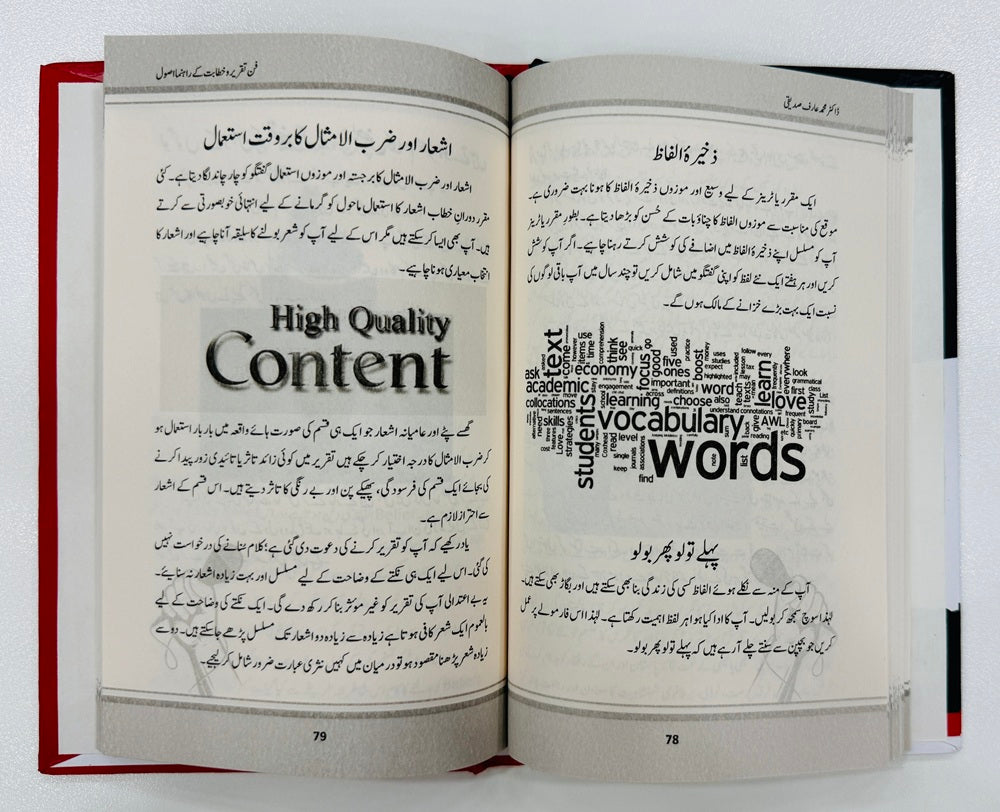 ڈاکٹر محمد عارف صدیقی
ذخیرۂ الفاظ
ایک مقرر یا ٹرینر کے لیے وسیع اور موزوں ذخیرۂ الفاظ کا ہونا بہت ضروری ہے۔
موقع کی مناسبت سے موزوں الفاظ کا چناؤ بات کے حُسن کو بڑھا دیتا ہے۔ بطورِ مقرر یا ٹرینر
آپ کو مسلسل اپنے ذخیرۂ الفاظ میں اضافے کی کوشش کرتے رہنا چاہیے۔ اگر آپ کوشش
کریں اور ہر ہفتے ایک نئے لفظ کو اپنی گفتگو میں شامل کریں تو چند سال میں آپ باقی لوگوں کی
نسبت ایک بہت بڑے خزانے کے مالک ہوں گے۔
text
come
items
use
time
think
see
quick
focus
go
good
five
used
ones
practice
boost
money
uses
studies
expect
follow
every
ask
economy
highlighted
may
learn
everywhere
look
grammatical
academic
engagement
important
word
teach
texts
love
first
study
class
collocations
move
learning
across
definitions
choose
also
understand
connotations
frequent
List
need
sentences
skills
students
vocabulary
sum
give
AWL
board
three
features
Love
strategies
many
read
level
back
reading
etc
quickly
cost
single
words
note
list
keep
journals
associations
find
پہلے تولو پھر بولو
آپ کے منہ سے نکلے ہوئے الفاظ کسی کی زندگی بنا بھی سکتے ہیں اور بگاڑ بھی سکتے ہیں۔
لہٰذا سوچ سمجھ کر بولیں۔ آپ کا ادا کیا ہوا ہر لفظ اہمیت رکھتا ہے۔ لہٰذا اس فارمولے پر عمل
کریں جو بچپن سے سنتے چلے آ رہے ہیں کہ پہلے تولو پھر بولو۔
78
فن تقریر و خطابت کے راہنما اصول
اشعار اور ضرب الامثال کا بر وقت استعمال
اشعار اور ضرب الامثال کا برجستہ اور موزوں استعمال گفتگو کو چار چاند لگا دیتا ہے۔ کئی
مقرر دورانِ خطاب اشعار کا استعمال ماحول کو گرمانے کے لیے انتہائی خوبصورتی سے کرتے
ہیں۔ آپ بھی ایسا کر سکتے ہیں مگر اس کے لیے آپ کو شعر بولنے کا سلیقہ آنا چاہیے اور اشعار کا
انتخاب معیاری ہونا چاہیے۔
High Quality
Content
گھسے پٹے اور عامیانہ اشعار جو ایک ہی قسم کی صورت ہائے واقعہ میں بار بار استعمال ہو
کر ضرب الامثال کا درجہ اختیار کر چکے ہیں تقریر میں کوئی زائد تاثر یا تائیدی زور پیدا کرنے
کی بجائے ایک قسم کی فرسودگی، پھیکے پن اور بے رنگی کا تاثر دیتے ہیں۔ اس قسم کے اشعار
سے احتراز لازم ہے۔
یاد رکھیے کہ آپ کو تقریر کرنے کی دعوت دی گئی ہے؛ کلام سُنانے کی درخواست نہیں
کی گئی۔ اس لیے ایک ہی نکتے کے وضاحت کے لیے مسلسل اور بہت زیادہ اشعار نہ سنائیے۔
یہ بے اعتدالی آپ کی تقریر کو غیر مؤثر بنا کر رکھ دے گی۔ ایک نکتے کی وضاحت کے لیے
بالعموم ایک شعر کافی ہوتا ہے زیادہ سے زیادہ دو اشعار تک مسلسل پڑھے جا سکتے ہیں۔ دو سے
زیادہ شعر پڑھنا مقصود ہو تو درمیان میں کہیں نثری عبارت ضرور شامل کر لیجیے۔
79